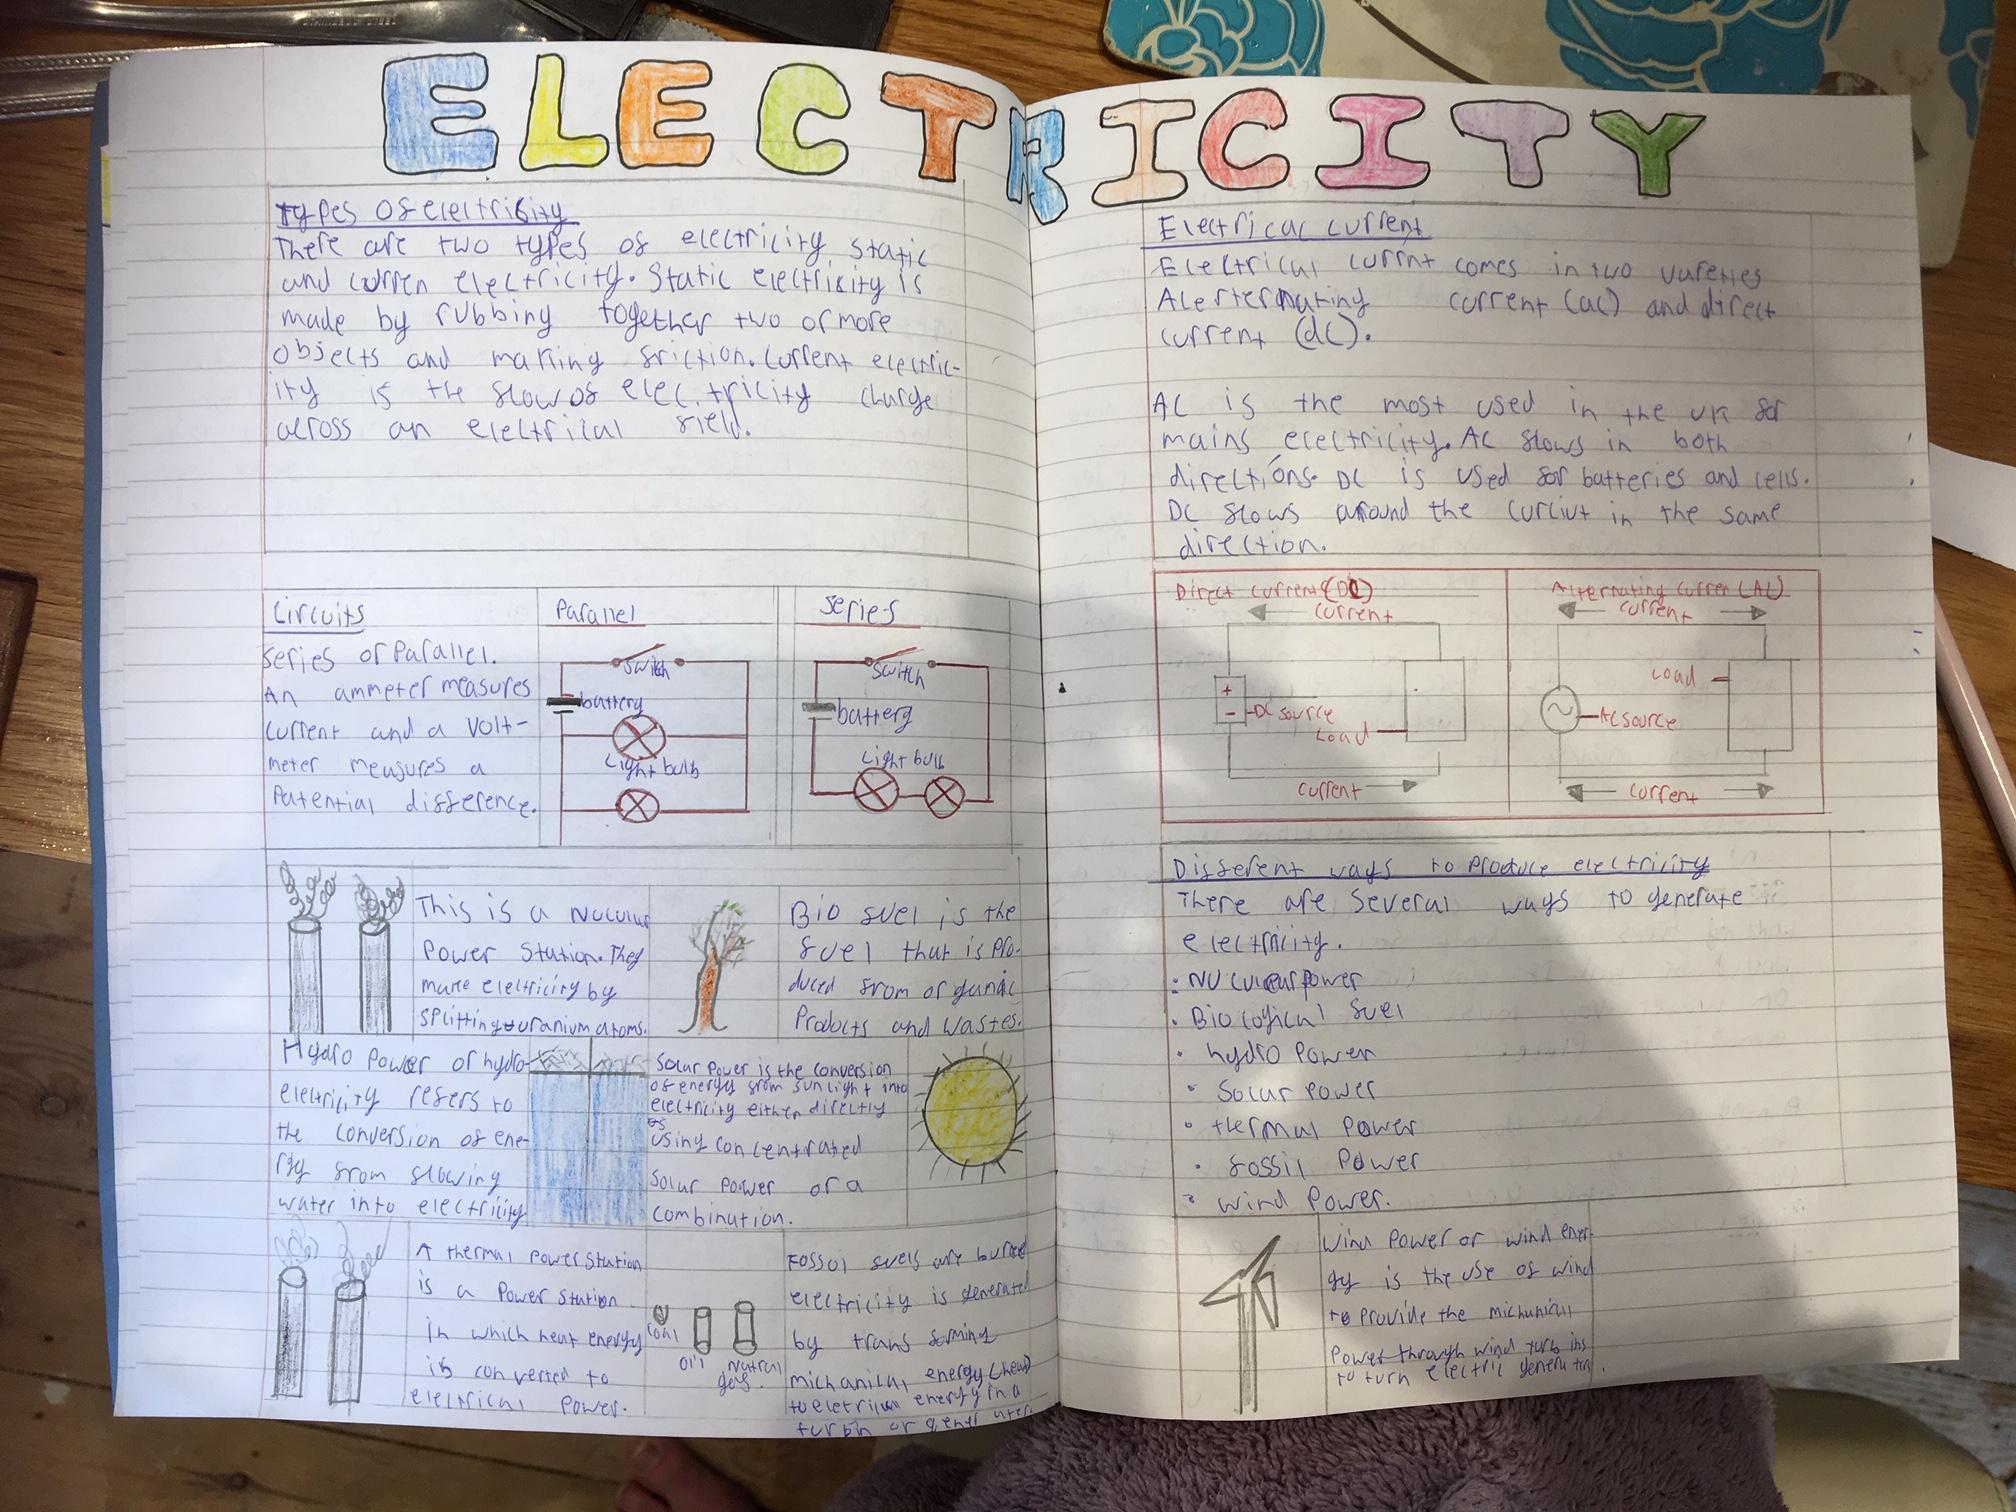 ELECTRICITY
Types of electricity
There are two types of electricity, static
and curren electricity. Static electricity is
made by rubbing together two or more
objects and making friction. Current electric-
ity is the flow of elec.tricity charge
across an electrical field.
Circuits
Series or Parallel.
An ammeter measures
current and a volt-
meter measures a
Potential difference.
Parallel
switch
battery
Light bulb
Series
switch
battery
Light bulb
This is a
Power Station. They
make electricity by
splitting uranium atoms.
Bio fuel is the
fuel that is pro-
duced from organic
Products and wastes.
Hydro Power or hydro-
electricity refers to
the conversion of ene-
rgy from flowing
water into electricity
Solar Power is the conversion
of energy from sunlight into
electricity either directly
using concentrated
solar power or a
combination.
A thermal Power Station
is a Power Station
in which heat energy
is converted to
electrical Power.
Coal
Oil
Natral
gas.
Fossil fuels are burned
electricity is generated
by transforming
michanical energy (heat)
to energy in a
turbin or
Electrical current
Electrical currnt comes in two
current (ac) and direct
current (dc).
AC is the most used in the UK for
mains electricity. AC flows in both
directions. DC is used for batteries and cells.
DC flows around the in the same
direction.
Direct current (DC)
current
DC source
Load
current
Alternating curren (AC)
current
Load
AC source
current
Different ways to produce electricity
There are several ways to generate
electricity.
• power
• Biological fuel
• hydro Power
• Solar Power
• thermal Power
• fossil Power
• wind Power.
Wind Power or wind ener-
gy is the use of wind
to Provide the michanical
Power through wind turbins
to turn electric